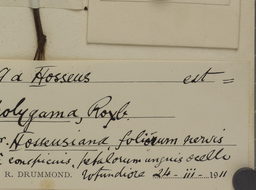 a d Hosseus est =
olygama, Roxb.
r. Hosseusiana foliorum nervis
conspicuis, petalorum unguis
R. DRUMMOND. rotundiora 24 - III - 1911